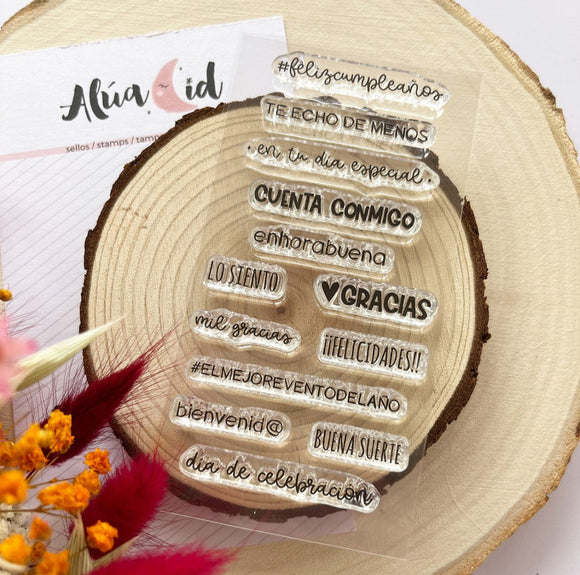 Alúa Cid
sellos / stamps / tamp
#felizcumpleaños
TE ECHO DE MENOS
· en tu día especial ·
CUENTA CONMIGO
enhorabuena
LO SIENTO
♥GRACIAS
mil gracias
¡¡FELICIDADES!!
#ELMEJOREVENTODELAÑO
bienvenid@
BUENA SUERTE
día de celebración